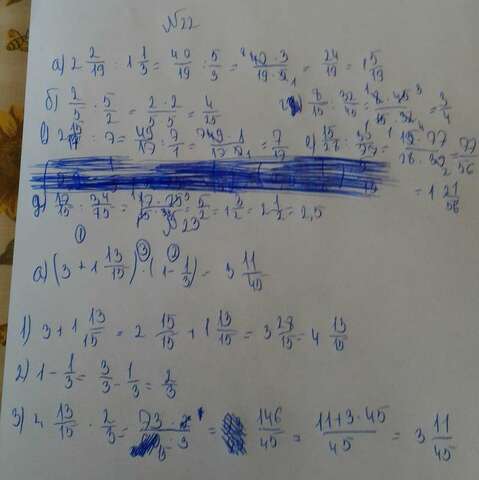 №22
а) 2 2/19 : 1 1/3 = 40/19 : 5/3 = 40·3/19·5 = 24/19 = 1 5/19
б) 2/5 : 5/2 = 2·2/5·5 = 4/25 8/15 : 32/45 = 8·45/15·32 = 3/4
в) : 7 = 49/17 : 7/1 = 49·1/17·7 = 7/17 е) 15/28 : = 77/56
= 1 21/56
д) 17/15 : 34/75 = 17·75/15·34 = 5/2 = = 2 1/2 = 2,5
№23
а) (3 + 1 13/15) · (1 - 1/3) = 3 11/45
1) 3 + 1 13/15 = 2 15/15 + 1 13/15 = 3 28/15 = 4 13/15
2) 1 - 1/3 = 3/3 - 1/3 = 2/3
3) 4 13/15 · 2/3 = 73·2/15·3 = 146/45 = 11+3·45/45 = 3 11/45